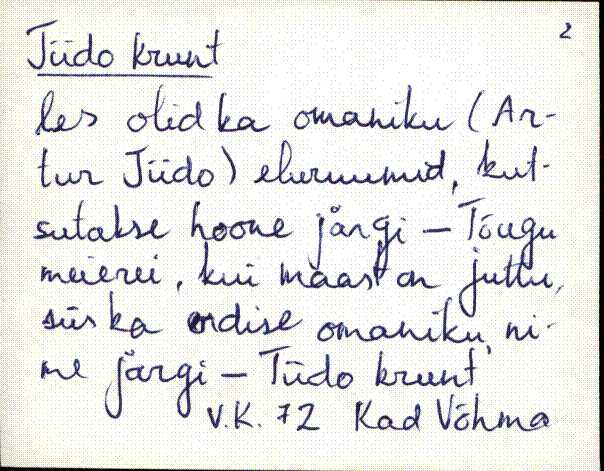 2
Tiido krunt
les olid ka omaniku (Ar-
tur Tiido) eluruumid, kut-
sutakse hoone järgi – Tõugu
meierei, kui maast on juttu,
siis ka endise omaniku ni-
me järgi – Tiido krunt
V.K. 72 Kad Võhma